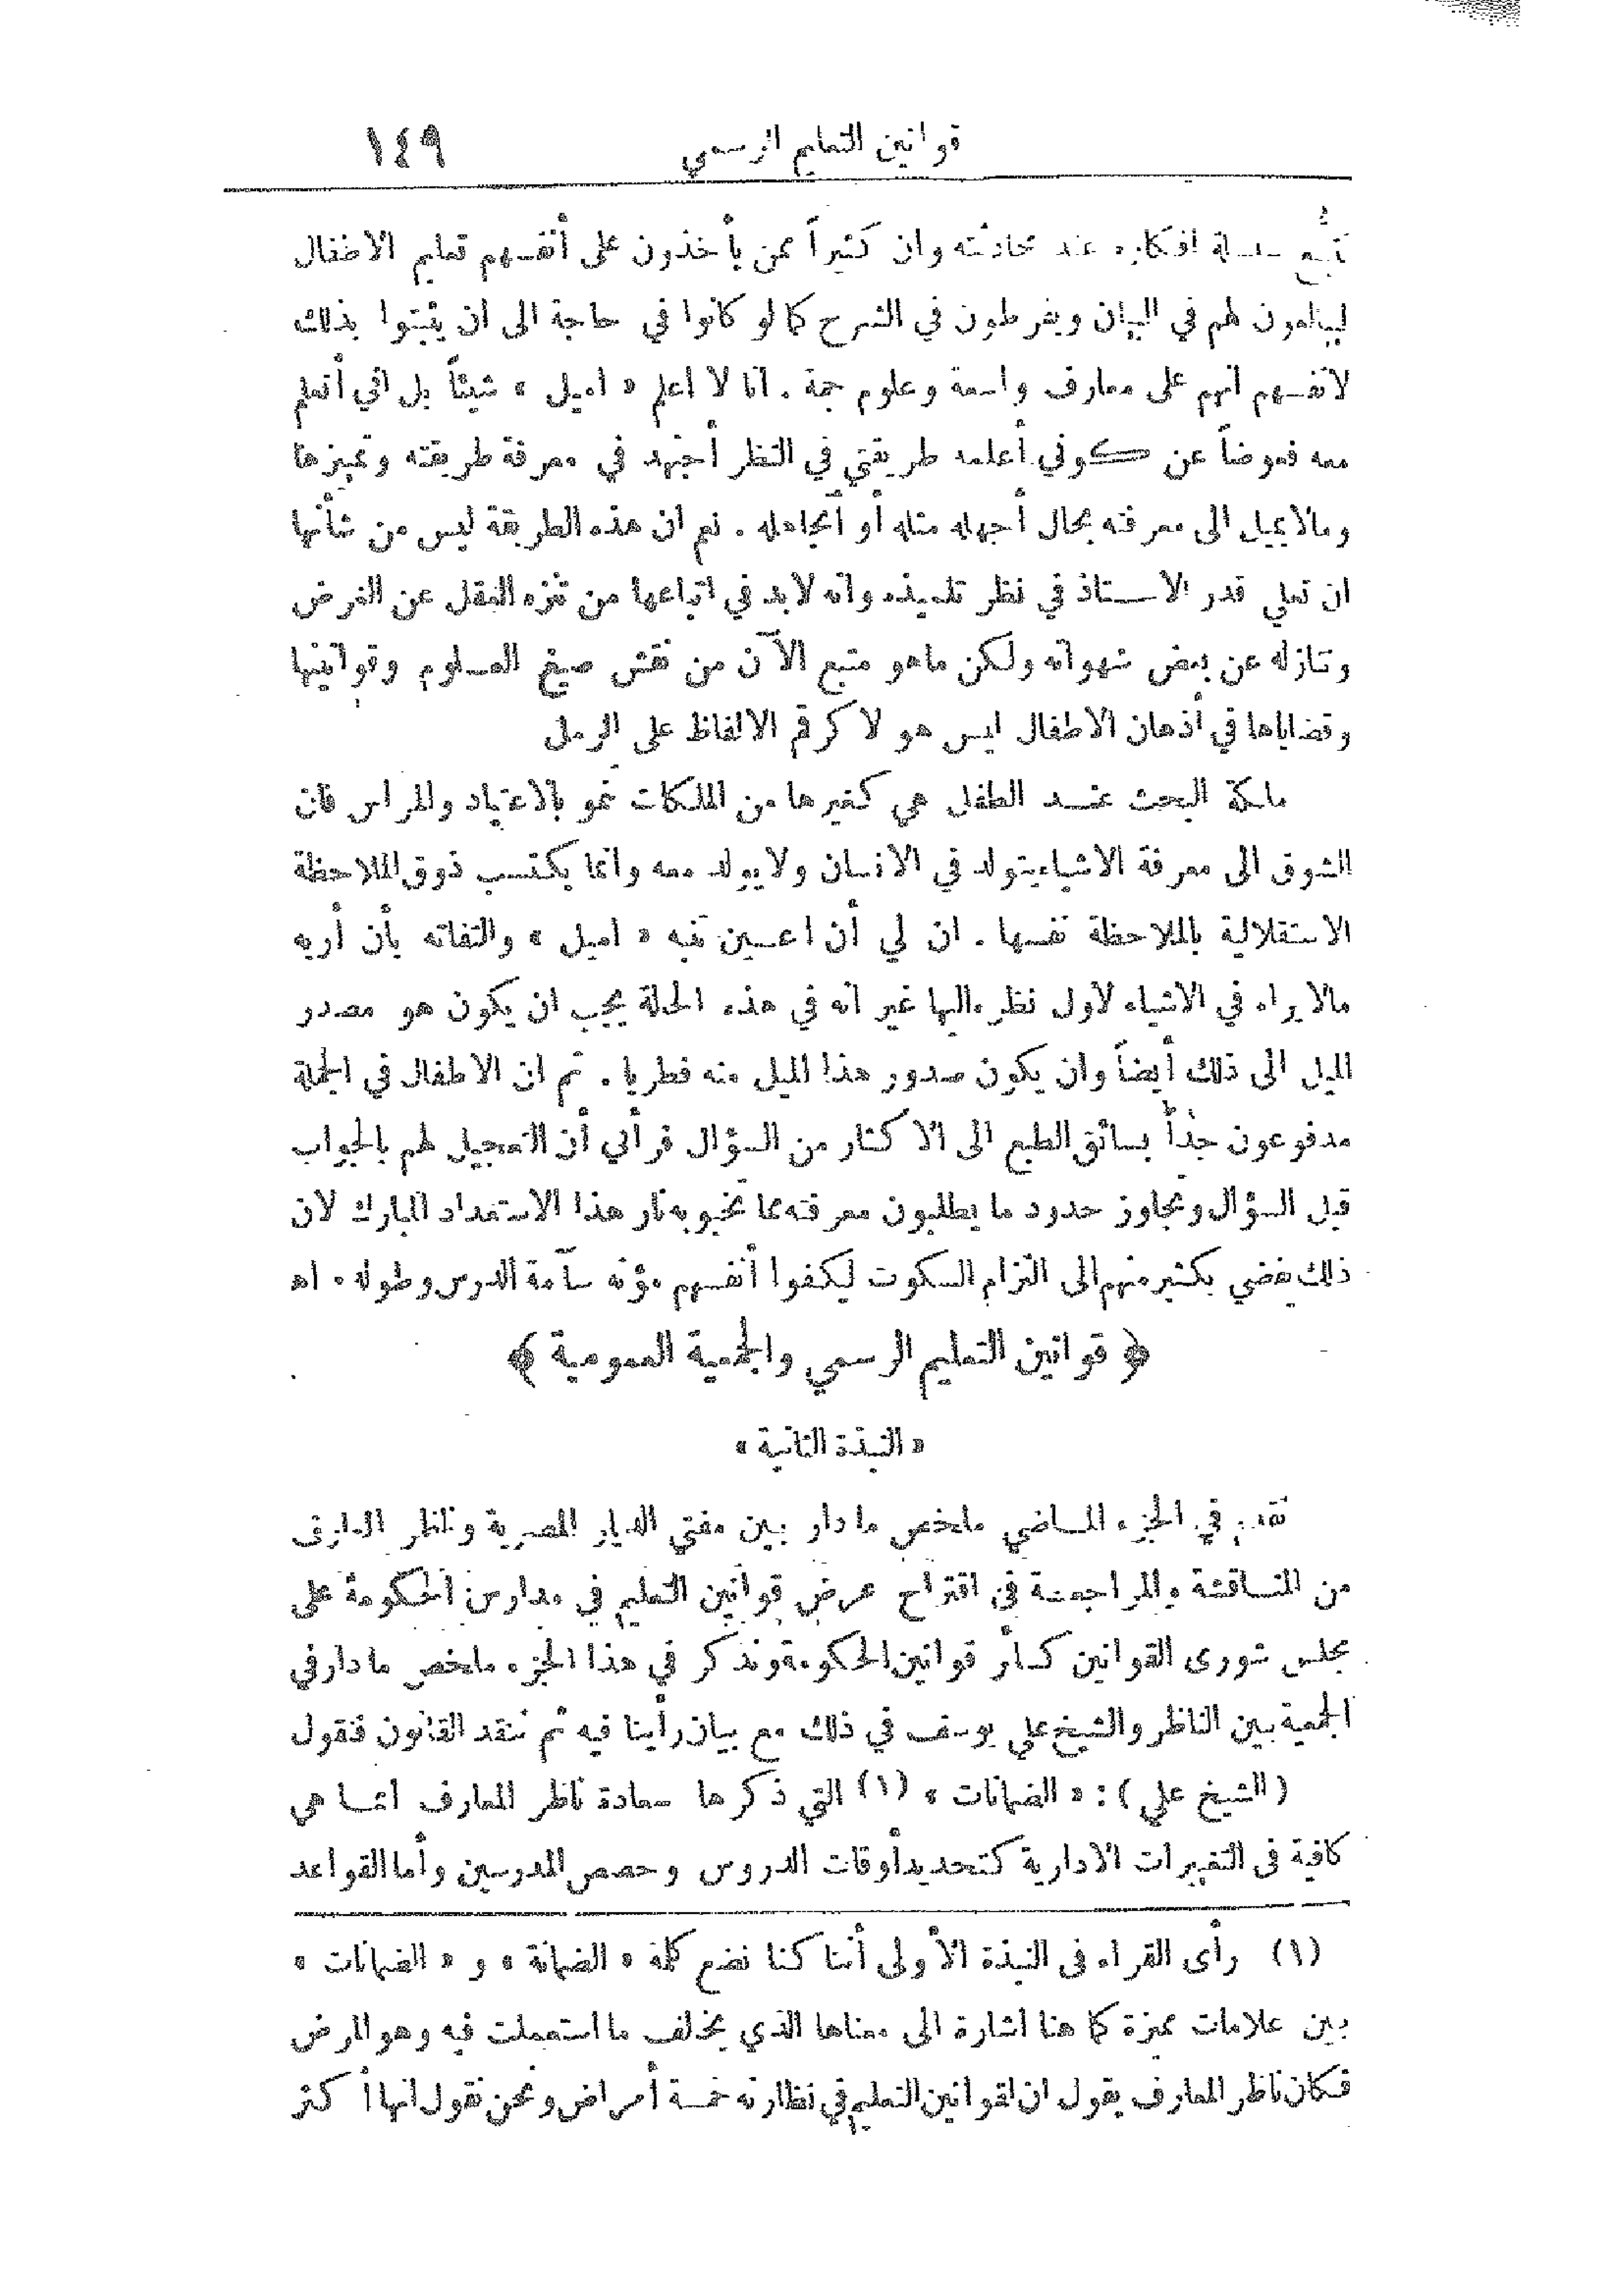 قوانين التعليم الرسمي ١٤٩
تتبع سلسلة افكاره عند محادثته وان كثيراً ممن يأخذون على أنفسهم تعليم الاطفال
ليبالغون لهم في البيان ويفرطون في الشرح كما لو كانوا في حاجة الى ان يثبتوا بذلك
لانفسهم انهم على معارف واسعة وعلوم جمة . انا لا اعلم « اميل » شيئاً بل اني أتعلم
معه فعوضاً عن كوني أعلمه طريقتي في النظر أجتهد في معرفة طريقته وتمييزها
ومالا يميل الى معرفته بحال أجهله مثله أو أتجاهله . نعم ان هذه الطريقة ليس من شأنها
ان تعلي قدر الاستاذ في نظر تلميذه وانه لابد في اتباعها من تنزه العقل عن الغرض
وتنازله عن بعض شهواته ولكن ماهو متبع الآن من نقش صيغ العلوم وقوانينها
وقضاياها في أذهان الاطفال ليس هو لا كرقم الالفاظ على الرمل
ملكة البحث عند الطفل هي كغيرها من الملكات تنمو بالاعتياد والمراس فان
الشوق الى معرفة الاشياء يتولد في الانسان ولا يولد معه وانما يكتسب ذوق الملاحظة
الاستقلالية بالملاحظة نفسها . ان لي أن اعين تنبه « اميل » والتفاته بأن أريه
مالا يراه في الاشياء لاول نظره اليها غير انه في هذه الحالة يجب ان يكون هو مصدر
الميل الى ذلك أيضاً وان يكون صدور هذا الميل منه فطريا . ثم ان الاطفال في الجملة
مدفوعون جداً بسائق الطبع الى الاكثار من السؤال فرأيي أن التعجيل لهم بالجواب
قبل السؤال وتجاوز حدود ما يطلبون معرفته مما تخبو به نار هذا الاستعداد المبارك لان
ذلك يفضي بكثير منهم الى التزام السكوت ليكفوا أنفسهم مؤنة سآمة الدرس وطوله . اه
﴿ قوانين التعليم الرسمي والجمعية العمومية ﴾
« النبذة الثانية »
تقدم في الجزء الماضي ملخص ما دار بين مفتي الديار المصرية وناظر المعارف
من المناقشة والمراجعة في اقتراح عرض قوانين التعليم في مدارس الحكومة على
مجلس شورى القوانين كسائر قوانين الحكومة ونذكر في هذا الجزء ملخص ما دار في
الجمعية بين الناظر والشيخ علي يوسف في ذلك مع بيان رأينا فيه ثم ننقد القانون فنقول
( الشيخ علي ) : « الضمانات » (١) التي ذكرها سعادة ناظر المعارف انما هي
كافية في التغييرات الادارية كتحديد أوقات الدروس وحصص المدرسين وأما القواعد
(١) رأى القراء في النبذة الأولى أننا كنا نضع كلمة « الضمانة » و « الضمانات »
بين علامات مميزة كما هنا اشارة الى معناها الذي يخالف ما استعملت فيه وهو المرض
فكان ناظر المعارف يقول ان لقوانين التعليم في نظارته خمسة أمراض ونحن نقول انها أكثر